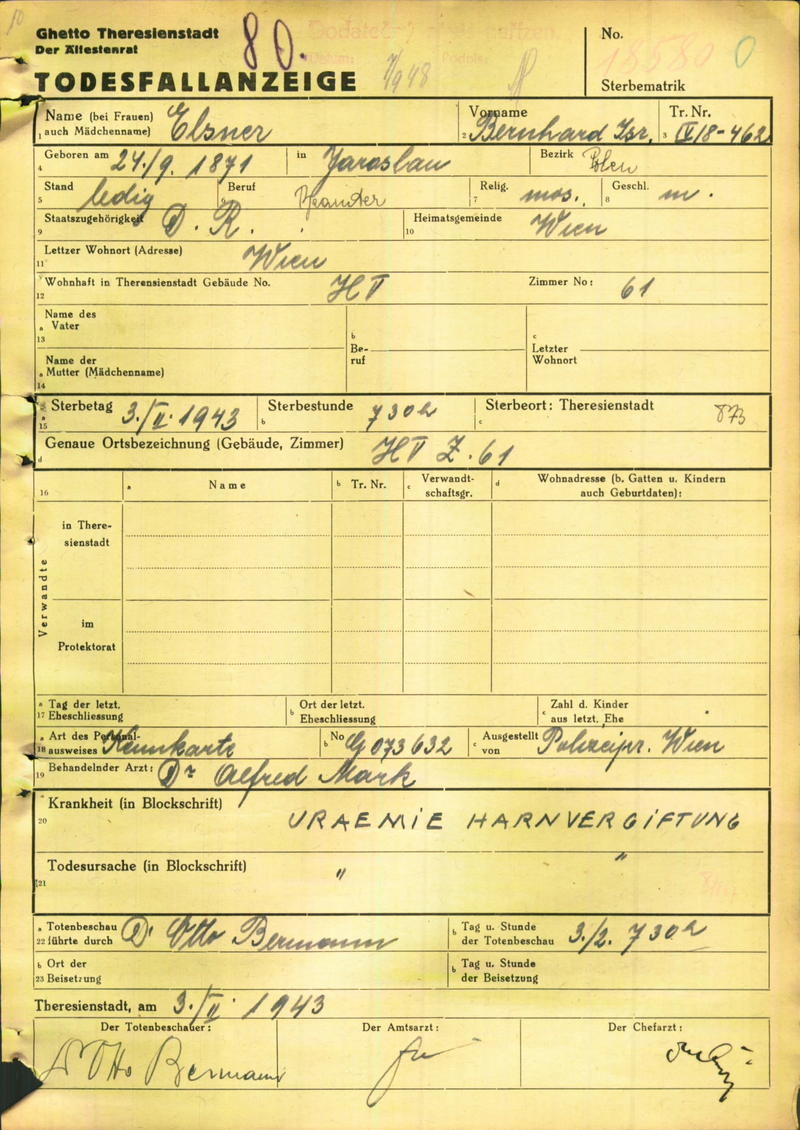 Ghetto Theresienstadt
Der Ältestenrat
80.
TODESFALLANZEIGE
No.
18580
Sterbematrik
Name (bei Frauen) auch Mädchenname) Elsner
Vorname Bernhard Isr.
Tr. Nr. IV/8-462
Geboren am 24./9. 1871 in Jaroslau Bezirk Polen
Stand ledig Beruf Beamter Relig. mos. Geschl. m.
Staatszugehörigkeit D. R. Heimatsgemeinde Wien
Lettzer Wohnort (Adresse) Wien
Wohnhaft in Therensienstadt Gebäude No. HV Zimmer No: 61
Name des Vater
Beruf
Letzter Wohnort
Name der Mutter (Mädchenname)
Sterbetag 3./II. 1943 Sterbestunde 7 30 h Sterbeort: Theresienstadt 873
Genaue Ortsbezeichnung (Gebäude, Zimmer) HV Z. 61
16 a Name b Tr. Nr. c Verwandtschaftsgr. d Wohnadresse (b. Gatten u. Kindern auch Geburtdaten):
Verwandte
in Theresienstadt
im Protektorat
17 a Tag der letzt. Eheschliessung b Ort der letzt. Eheschliessung c Zahl d. Kinder aus letzt. Ehe
18 a Art des Personalausweises Kennkarte b No G 073632 c Ausgestellt von Polizeipr. Wien
19 Behandelnder Arzt: Dr Alfred Mark
20 Krankheit (in Blockschrift) URAEMIE HARNVERGIFTUNG
21 Todesursache (in Blockschrift) " "
22 a Totenbeschau führte durch Dr Otto Bermann b Tag u. Stunde der Totenbeschau 3./2. 7 30 h
23 b Ort der Beisetzung b Tag u. Stunde der Beisetzung
Theresienstadt, am 3./II. 1943
Der Totenbeschauer: Der Amtsarzt: Der Chefarzt:
Dr Otto Bermann